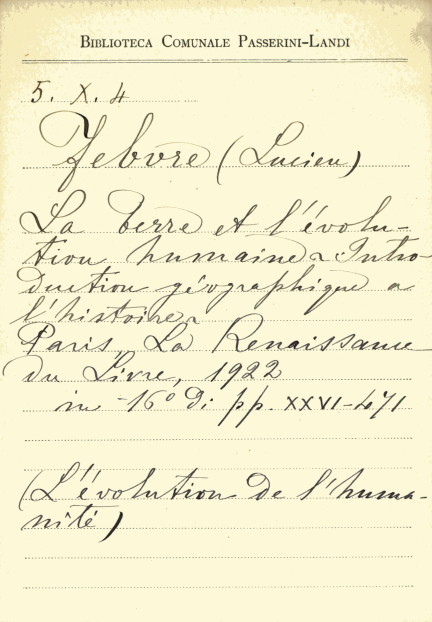 BIBLIOTECA COMUNALE PASSERINI-LANDI
5. X. 4
Febvre (Lucien)
La Terre et l'évolu-
tion humaine. Intro-
duction géographique a
l'histoire.
Paris, La Renaissance
du Livre, 1922
in -16° di pp. XXVI-471
(L'évolution de l'huma-
nité)